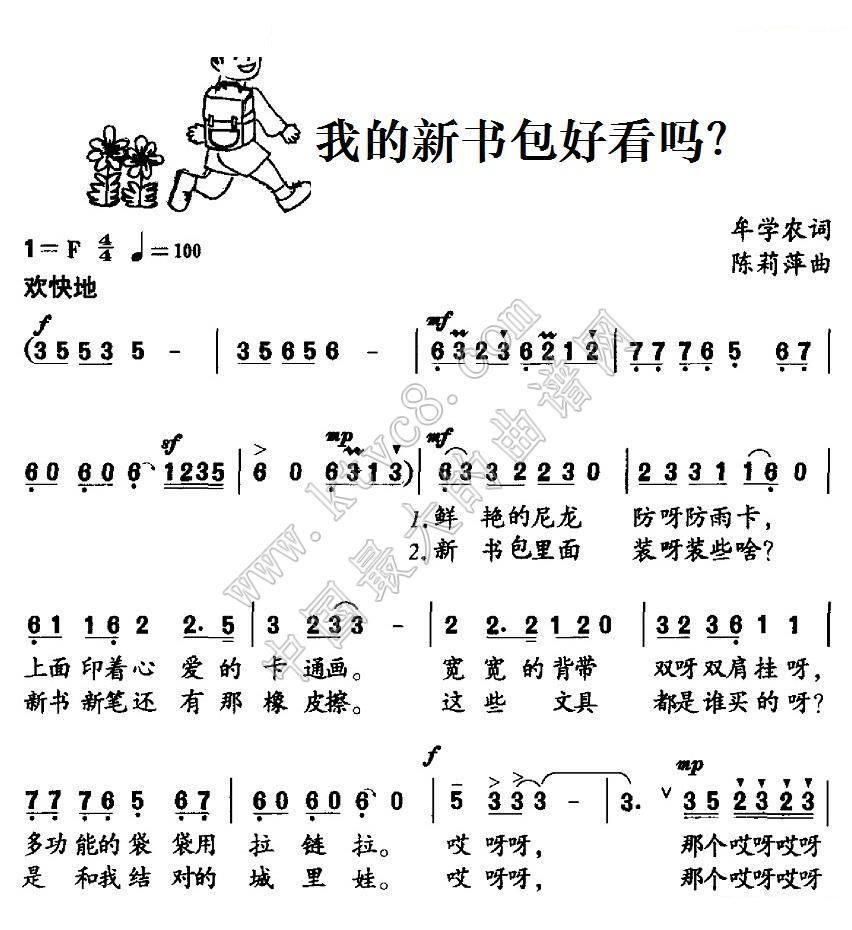 我的新书包好看吗?
1=F 4/4 ♩=100
牟学农词
陈莉萍曲
欢快地
f mf
(3 5 5 3 5 - | 3 5 6 5 6 - | 6 3 2 3 6 2 1 2 | 7 7 7 6 5 6 7 |
sf mp mf
6 0 6 0 6 1 2 3 5 | 6 0 6 3 1 3) | 6 3 3 2 2 3 0 | 2 3 3 1 1 6 0 |
1.鲜 艳的尼龙 防呀防雨卡,
2.新 书包里面 装呀装些啥?
6 1 1 6 2 2. 5 | 3 2 3 3 - | 2 2. 2 1 2 0 | 3 2 3 6 1 1 |
上面印着心 爱的卡 通画。 宽宽的背带 双呀双肩挂呀,
新书新笔还 有那橡 皮擦。 这些 文具 都是谁买的呀?
f mp
7 7 7 6 5 6 7 | 6 0 6 0 6 0 | 5 3 3 3 - | 3. ∨ 3 5 2 3 2 3 |
多功能的袋 袋用 拉 链 拉。 哎 呀呀, 那个哎呀哎呀
是 和我结 对的 城 里 娃。 哎 呀呀, 那个哎呀哎呀
www.ktvc8.com
中国最大的曲谱网